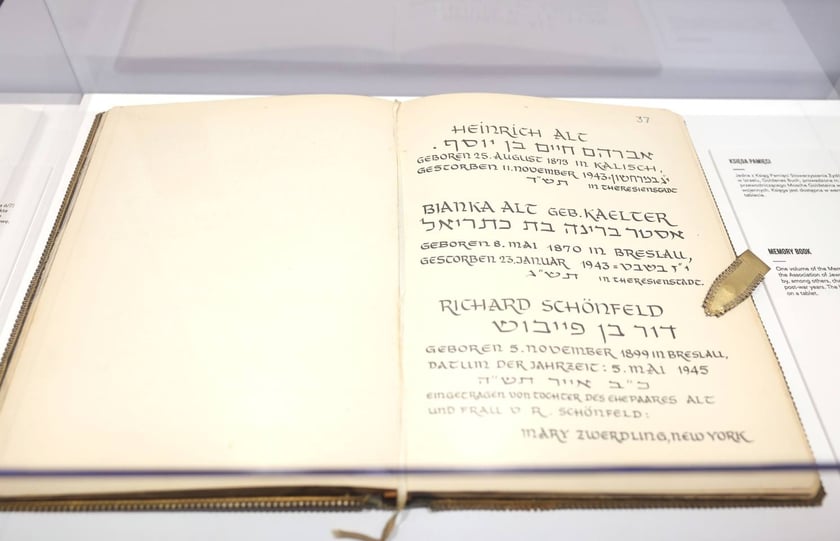 37
HEINRICH ALT
אברהם חיים בן יוסף.
GEBOREN 25. AUGUST 1873 IN KALISCH,
GESTORBEN 11. NOVEMBER 1943=
תש״ד IN THERESIENSTADT
BIANKA ALT GEB. KAELTER
אסטר ברינה בת כתריאל
GEBOREN 8. MAI 1870 IN BRESLAU,
GESTORBEN 23. JANUAR 1943 = י״ז בשבט
תש״ג IN THERESIENSTADT.
RICHARD SCHÖNFELD
דור בן פייבוש
GEBOREN 5. NOVEMBER 1899 IN BRESLAU,
DATUM DER JAHRZEIT: 5. MAI 1945
כ״ב אייר תש״ה
EINGETRAGEN VON TOCHTER DES EHEPAARES ALT
UND FRAU V R. SCHÖNFELD:
MARY ZWERDLING, NEW YORK
KSIĘGA PAMIĘCI
Jedna z Ksiąg Pamięci Stowarzyszenia
w Izraelu,
MEMORY BOOK
One volume of the
the Association of
by, among others,
post-war years. The
on a tablet.